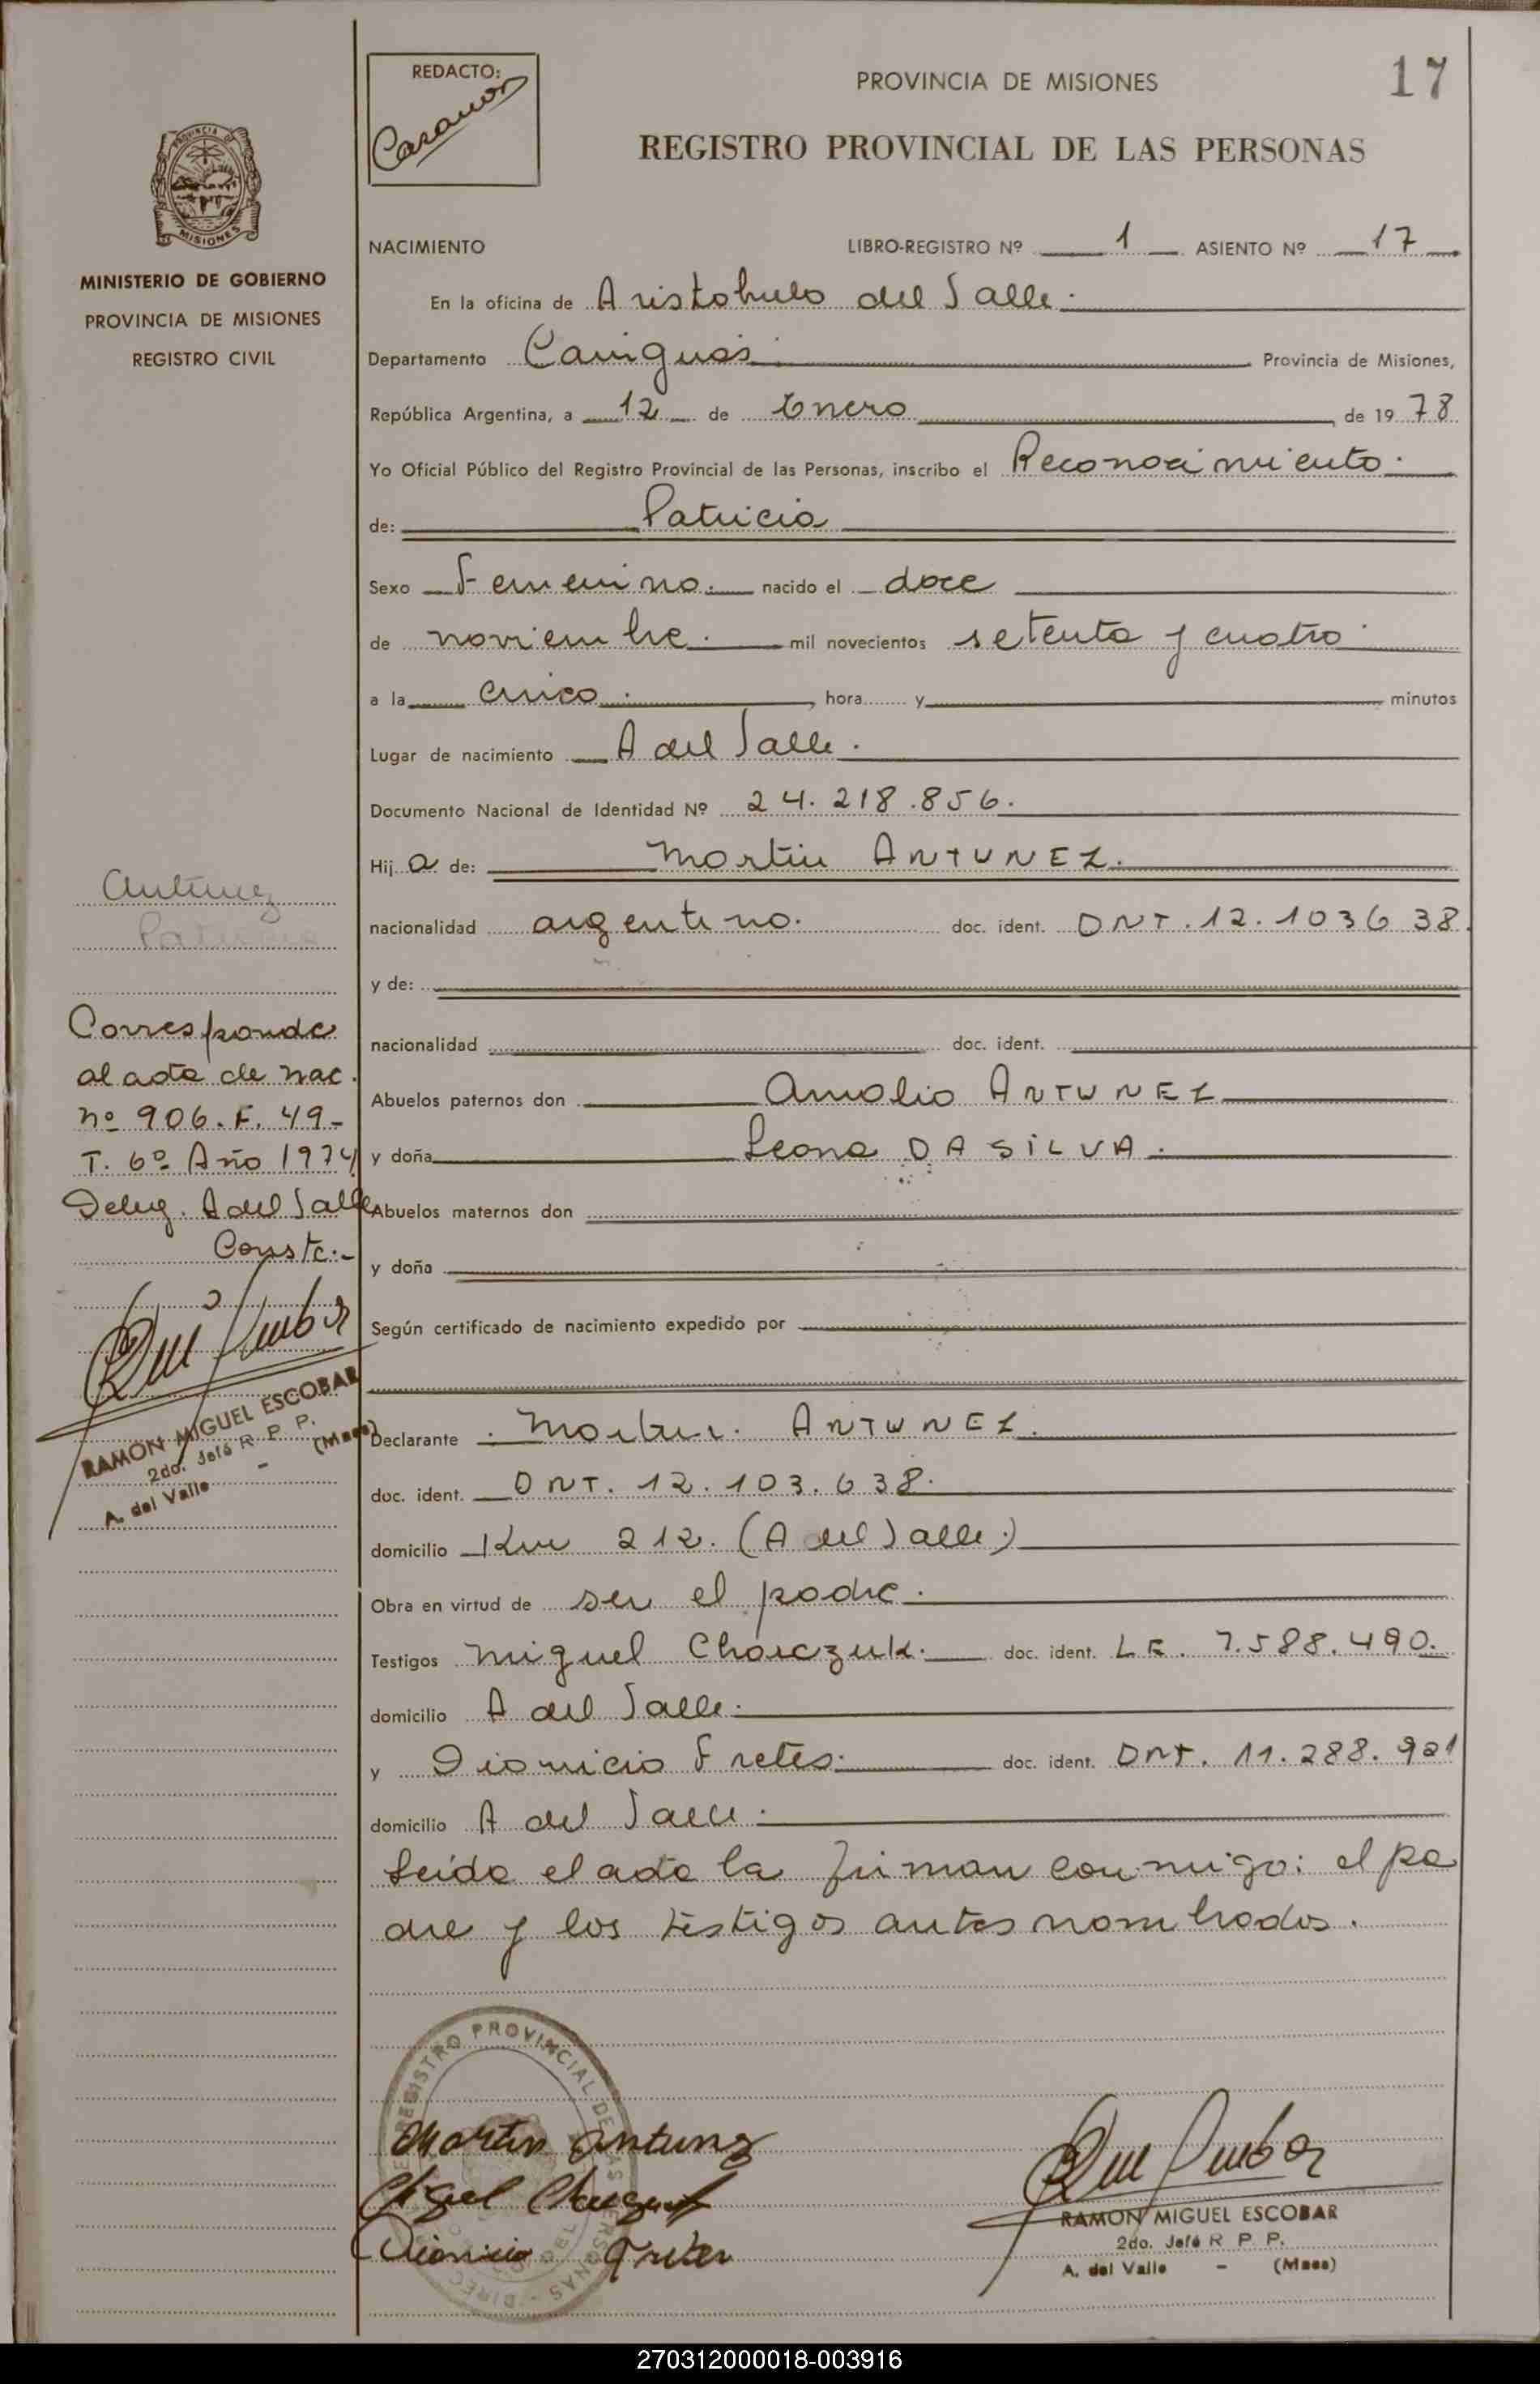 REDACTO:
PROVINCIA DE MISIONES
17
REGISTRO PROVINCIAL DE LAS PERSONAS
PROVINCIA DE
MISIONES
MINISTERIO DE GOBIERNO
PROVINCIA DE MISIONES
REGISTRO CIVIL
NACIMIENTO LIBRO-REGISTRO Nº 1 ASIENTO Nº 17
En la oficina de Aristobulo del Valle.
Departamento Cainguás. Provincia de Misiones,
República Argentina, a 12 de Enero de 1978
Yo Oficial Público del Registro Provincial de las Personas, inscribo el Reconocimiento.
de: Patricia
Sexo Femenino. nacido el doce
de noviembre. mil novecientos setenta y cuatro.
a la cinco. , hora y minutos
Lugar de nacimiento A del Valle.
Documento Nacional de Identidad Nº 24.218.856.
Hij a de: Martin ANTUNEZ.
nacionalidad argentino. doc. ident. DNT. 12.103638.
y de:
nacionalidad doc. ident.
Abuelos paternos don Amalio ANTUNEZ
y doña Leona DA SILVA.
Abuelos maternos don
y doña
Según certificado de nacimiento expedido por
Declarante . Martin. ANTUNEZ.
doc. ident. DNT. 12.103.638.
domicilio Km 212. (A del Valle.)
Obra en virtud de ser el padre.
Testigos Miguel Charczuk. doc. ident. LE. 7.588.490.
domicilio A del Valle.
y Dionicio Fretes. doc. ident. DNT. 11.288.921
domicilio A del Valle.
Leida el acta la firman conmigo: el pa
dre y los testigos antes nombrados.
Antunez
Patricia
Corresponde
al acta de nac.
nº 906. F. 49-
T. 6º Año 1974
Deleg. A del Valle
Conste.-
RAMON MIGUEL ESCOBAR
2do. Jefe R P P.
A. del Valle - (Mnes)
REGISTRO PROVINCIAL DE LAS PERSONAS
Martin Antunez
Dionicio Fretes
RAMON MIGUEL ESCOBAR
2do. Jefe R P P.
A. del Valle - (Mnes)
270312000018-003916